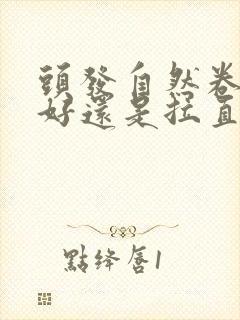 頭發自然卷
好還是拉直
點絳唇1